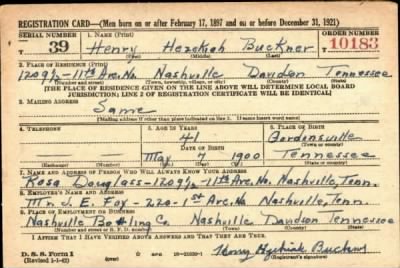 REGISTRATION CARD—(Men born on or after February 17, 1897 and on or before December 31, 1921)
SERIAL NUMBER 1. NAME (Print) ORDER NUMBER
T 39 Henry Hezekiah Buckner 10183
(First) (Middle) (Last)
2. PLACE OF RESIDENCE (Print)
1209½-11th Ave. No. Nashville Davidson Tennessee
(Number and street) (Town, township, village, or city) (County) (State)
[THE PLACE OF RESIDENCE GIVEN ON THE LINE ABOVE WILL DETERMINE LOCAL BOARD
JURISDICTION; LINE 2 OF REGISTRATION CERTIFICATE WILL BE IDENTICAL]
3. MAILING ADDRESS
Same
[Mailing address if other than place indicated on line 2. If same insert word same]
4. TELEPHONE 5. AGE IN YEARS 6. PLACE OF BIRTH
41 Gordonsville
DATE OF BIRTH (Town or county)
May 7 1900 Tennessee
(Exchange) (Number) (Mo.) (Day) (Yr.) (State or country)
7. NAME AND ADDRESS OF PERSON WHO WILL ALWAYS KNOW YOUR ADDRESS
Rosa Douglass-1209½-11th Ave. No. Nashville, Tenn.
8. EMPLOYER'S NAME AND ADDRESS
Mr. J. E. Fox-220-1st Ave. No. Nashville, Tenn.
9. PLACE OF EMPLOYMENT OR BUSINESS
Nashville Bottling Co. Nashville Davidson Tennessee
(Number and street or R. F. D. number) (Town) (County) (State)
I AFFIRM THAT I HAVE VERIFIED ABOVE ANSWERS AND THAT THEY ARE TRUE.
D. S. S. Form 1
(Revised 1-1-42) GPO 16-21630-1 Henry Hezekiah Buckner
(Registrant's signature)